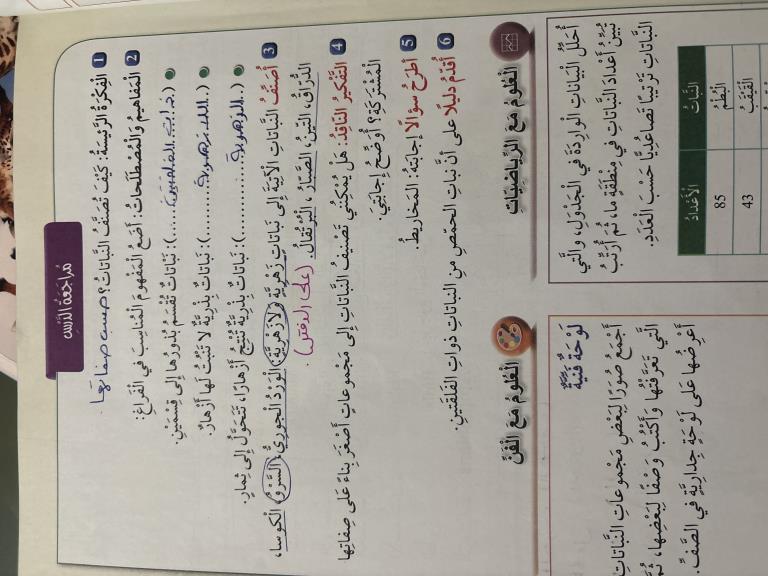 مُراجَعَةُ الدَّرْسِ
1 الْفِكْرَةُ الرَّئِيسَةُ: كَيْفَ تُصَنَّفُ النَّباتاتُ؟ حسب صفاتها
2 الْمَفاهيمُ وَالْمُصْطَلَحاتُ: أَضَعُ الْمَفْهومَ الْمُناسِبَ في الْفَراغِ:
(ذات الفلقتين): نَباتاتٌ تُقْسَمُ بُذورُها إِلى قِسْمَيْنِ.
(اللازهرية): نَباتاتٌ بِذْرِيَّةٌ لا تَنْبُتُ لَها أَزْهارٌ.
(الزهرية): نَباتاتٌ بِذْرِيَّةٌ تُنْتِجُ أَزْهارًا، تَتَحَوَّلُ إِلى ثِمارٍ.
3 أُصَنِّفُ النَّباتاتِ الْآتِيَةَ إِلى نَباتاتٍ زَهْرِيَّةٍ وَلازَهْرِيَّةٍ: الْوَرْدُ الْجورِيُّ، السَّرْوُ، الْكوسا،
الدُّرّاقُ، التّينُ، الصَّبّارُ، الْبُرْتُقالُ. (على الدفتر)
4 التَّفْكيرُ النّاقِدُ: هَلْ يُمْكِنُني تَصْنيفُ النَّباتاتِ إِلى مَجْموعاتٍ أَصْغَرَ بِناءً عَلى صِفاتِها
الْمُشْتَرَكَةِ؟ أُوَضِّحُ إِجابَتي.
5 أَطْرَحُ سُؤالًا إِجابَتُهُ: الْمَخاريطُ.
6 أُقَدِّمُ دَليلًا عَلى أَنَّ نَباتَ الْحِمَّصِ مِنَ النَّباتاتِ ذَواتِ الْفَلْقَتَيْنِ.
الْعُلومُ مَعَ الرِّياضِيّاتِ
أُحَلِّلُ الْبَياناتِ الْوارِدَةَ في الْجَدْوَلِ، وَالَّتي
تُبَيِّنُ أَعْدادَ النَّباتاتِ في مِنْطَقَةٍ ما، ثُمَّ أُرَتِّبُ
النَّباتاتِ تَرْتيبًا تَصاعُدِيًّا حَسَبَ الْعَدَدِ.
النَّباتُ الْأَعْدادُ
الْبُطْمُ 85
الْقَيْقَبُ 43
الْعُلومُ مَعَ الْفَنِّ
لَوْحَةٌ فَنِّيَّةٌ
أَجْمَعُ صُوَرًا لِبَعْضِ مَجْموعاتِ النَّباتاتِ
الَّتي تَعَرَّفْتُها وَأَكْتُبُ وَصْفًا لِبَعْضِها، ثُمَّ
أَعْرِضُها عَلى لَوْحَةٍ جِدارِيَّةٍ في الصَّفِّ.